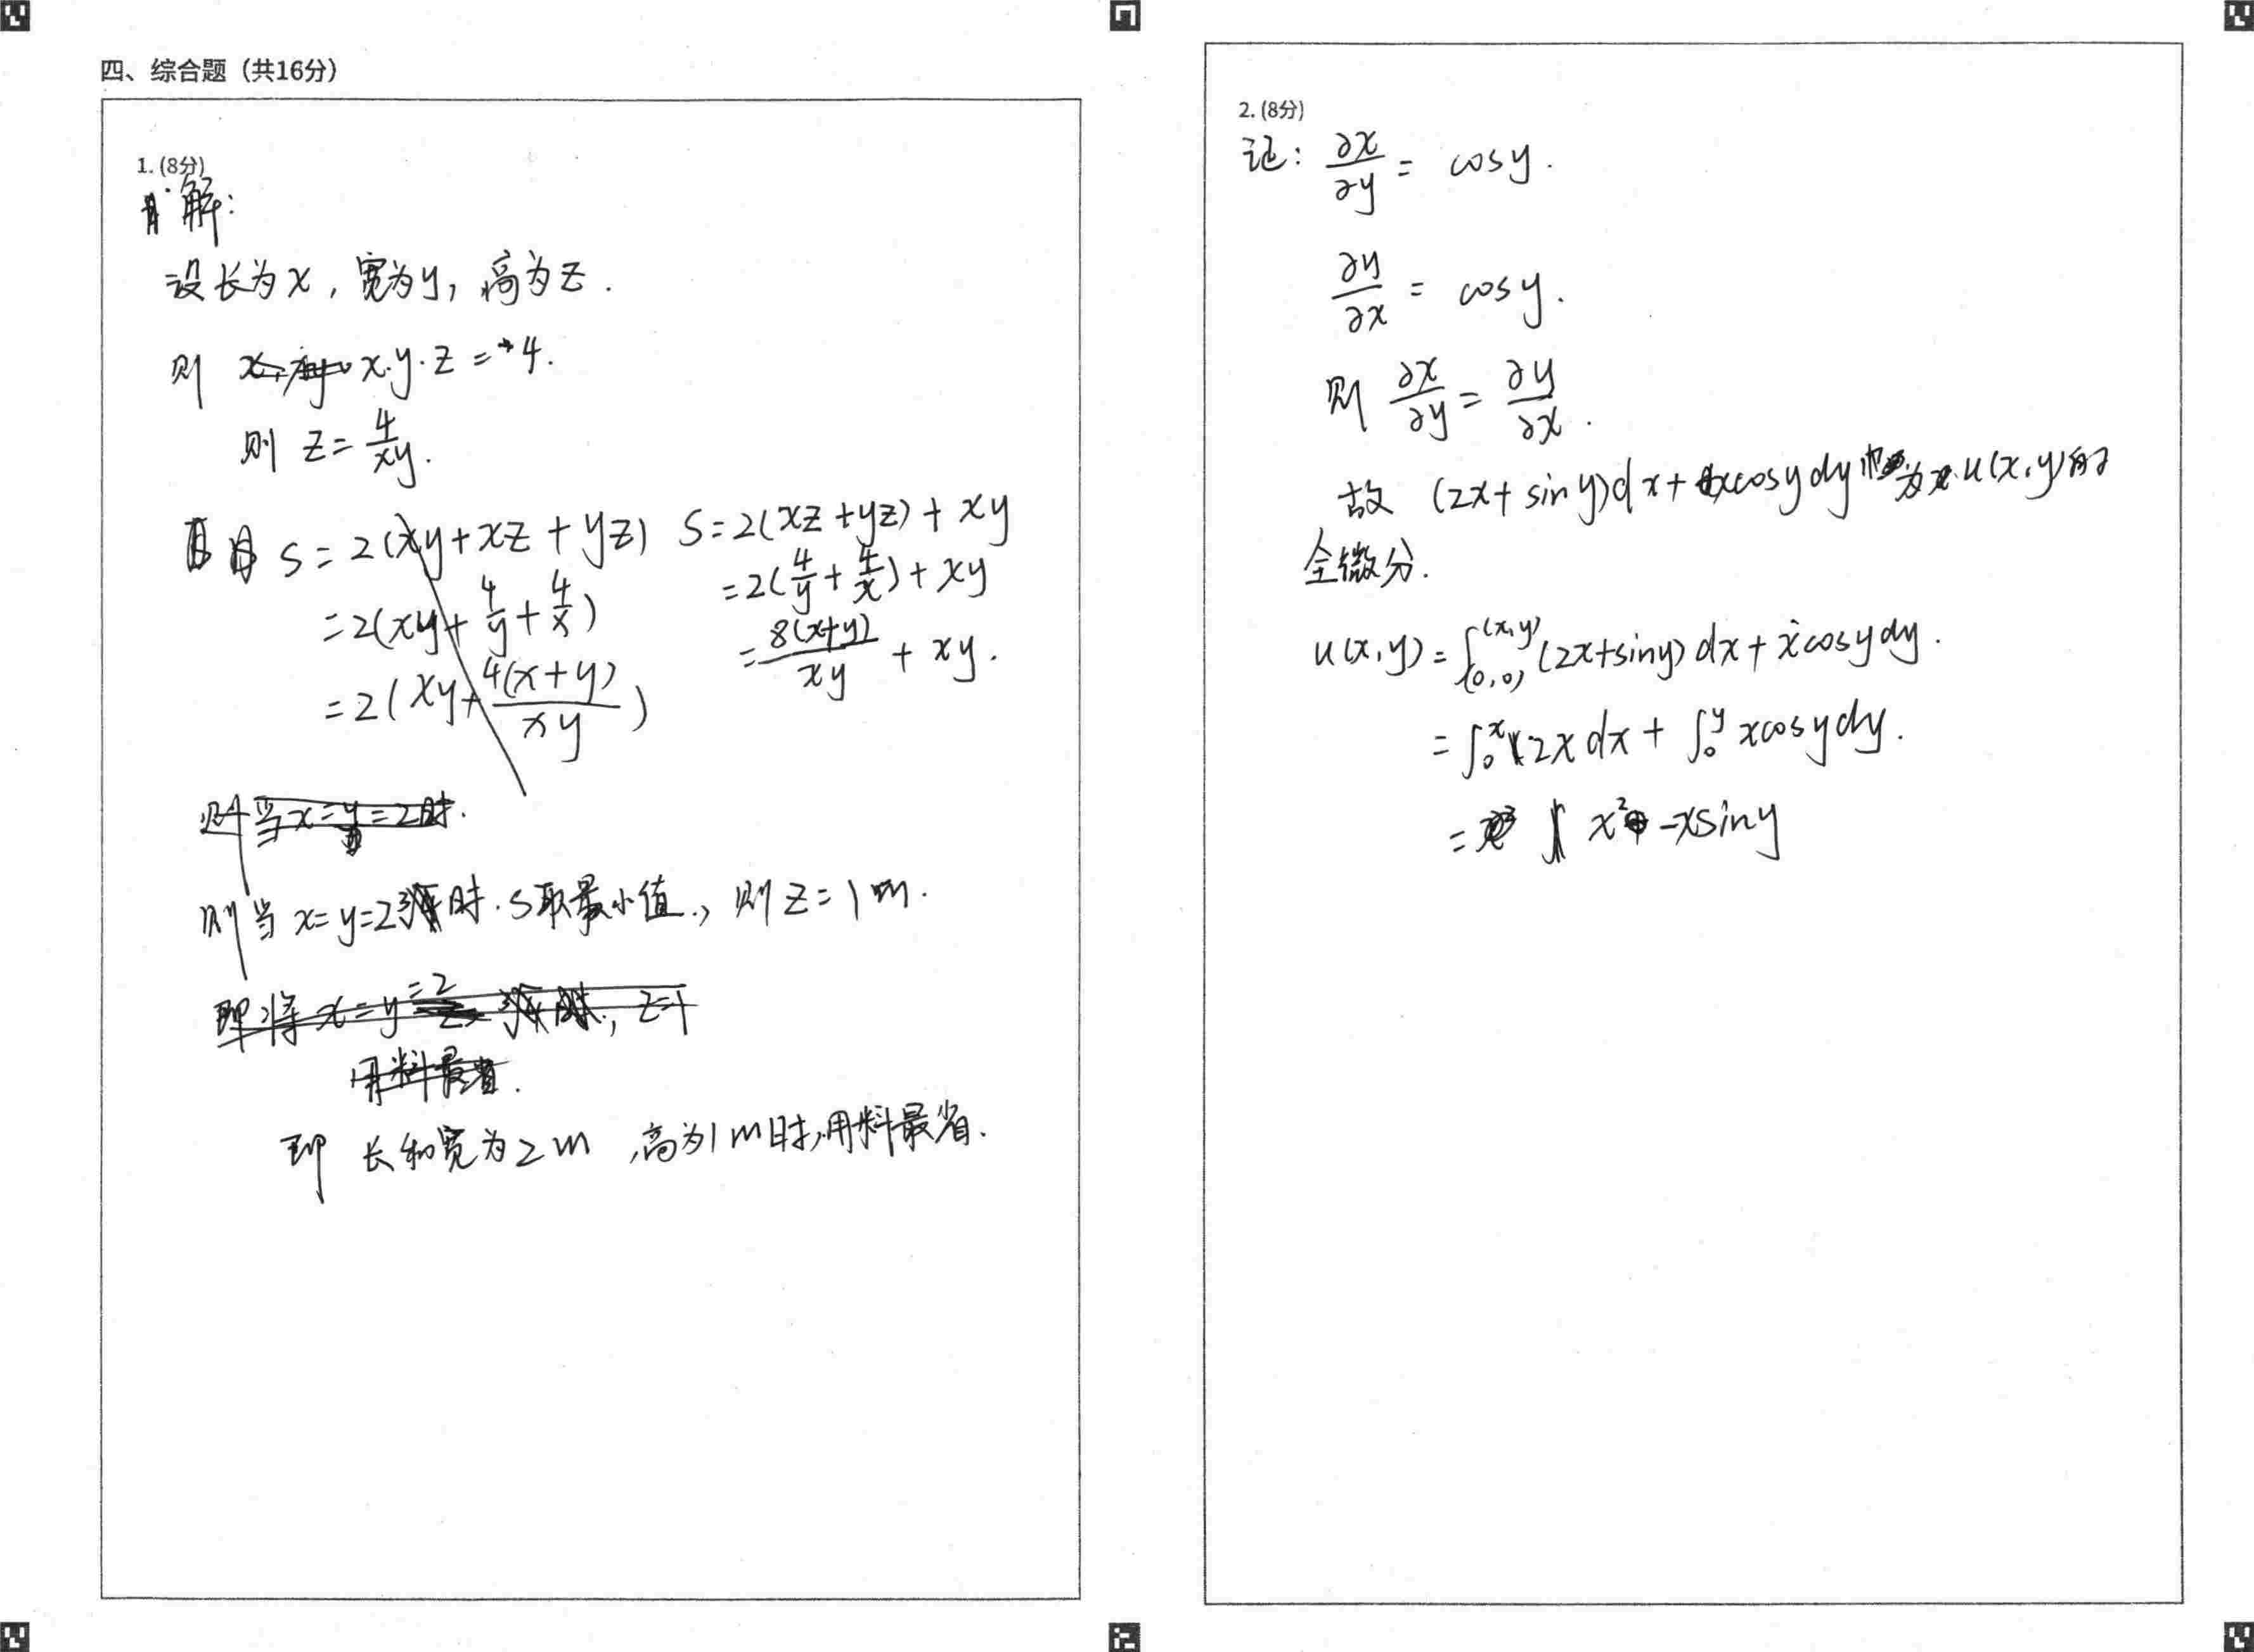 四、综合题（共16分）
1. (8分)
解:
设长为x, 宽为y, 高为z.
则 x·y·z = 4.
则 z = 4/xy.
S = 2(xy+xz+yz)
= 2(xy + 4/y + 4/x)
= 2(xy + 4(x+y)/xy)
S = 2(xz+yz) + xy
= 2(4/y + 4/x) + xy
= 8(x+y)/xy + xy.
则当x=y=2时.
则当 x=y=2时. S取最小值., 则 z=1m.
即将 x=y=2 时, z=1
用料最省.
即 长和宽为2m ,高为1m时,用料最省.
2. (8分)
记: ∂x/∂y = cosy.
∂y/∂x = cosy.
则 ∂x/∂y = ∂y/∂x.
故 (2x+siny)dx+xcosydy 为 u(x,y)的
全微分.
u(x,y) = ∫_(0,0)^(x,y) (2x+siny)dx+xcosydy.
= ∫_0^x 2xdx + ∫_0^y xcosydy.
= x² -xsiny